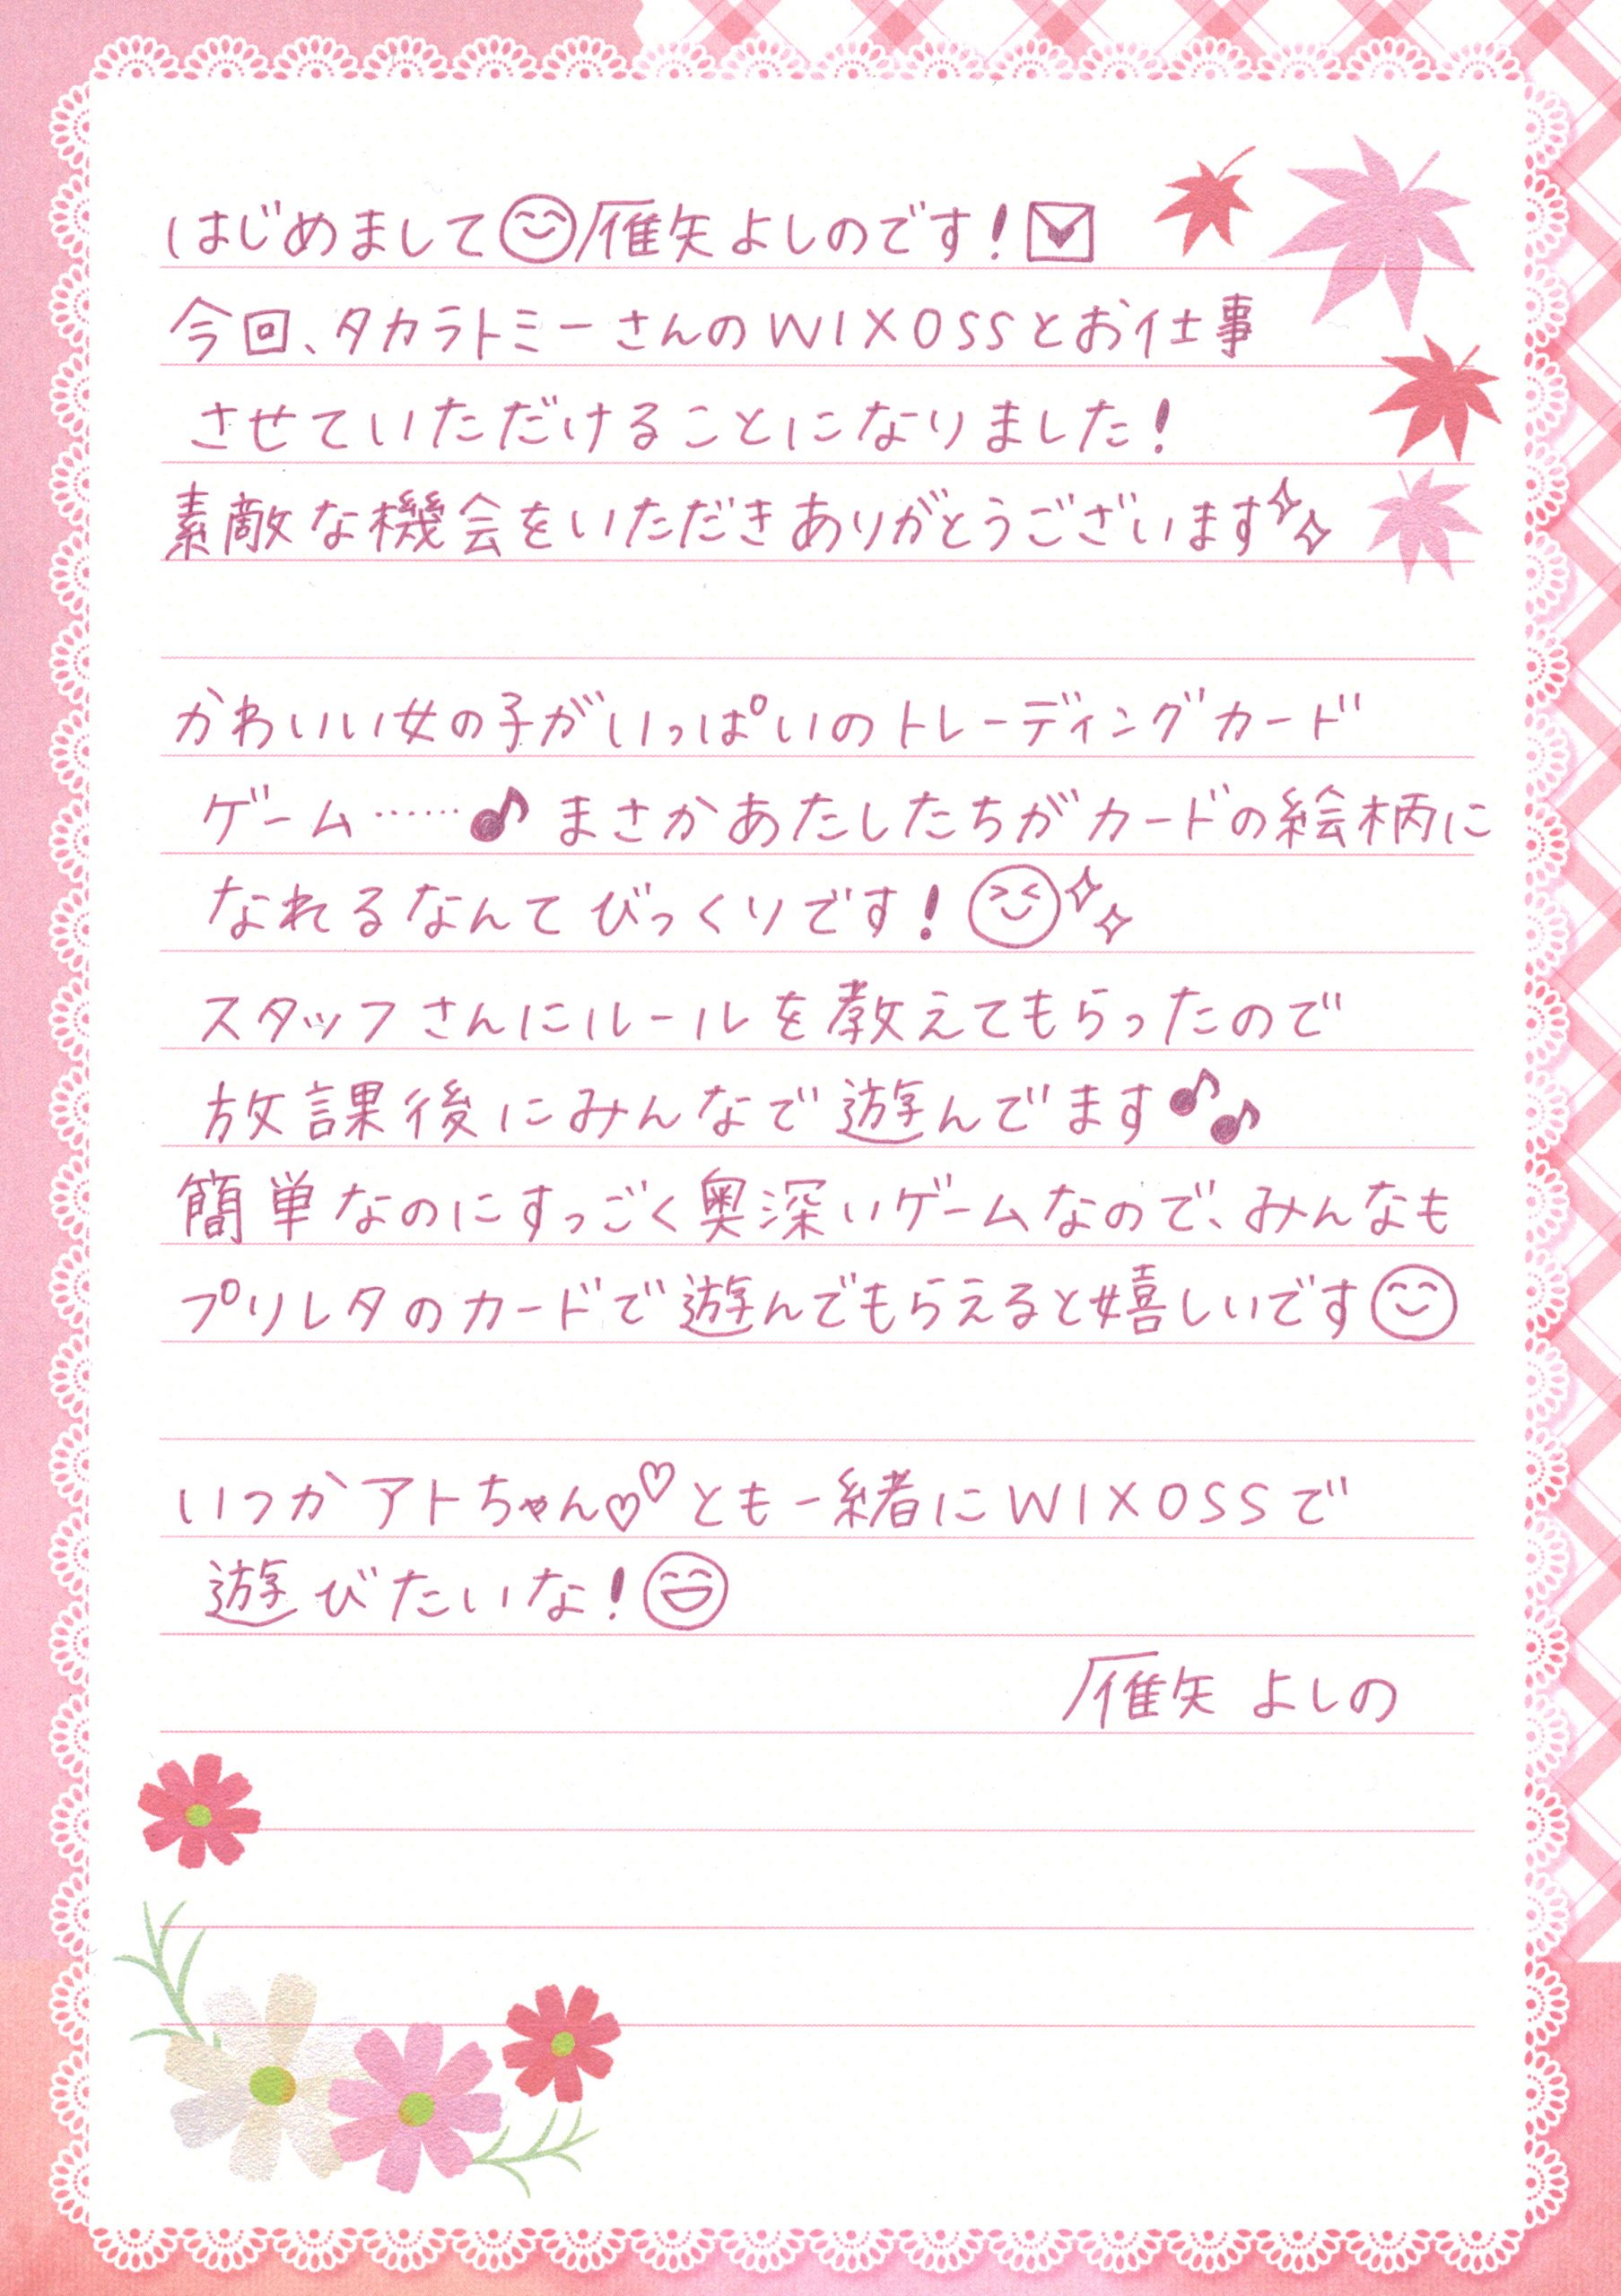 はじめまして😊雁矢よしのです！💌
今回、タカラトミーさんのWIXOSSとお仕事
させていただけることになりました！
素敵な機会をいただきありがとうございます✨
かわいい女の子がいっぱいのトレーディングカード
ゲーム……♪ まさかあたしたちがカードの絵柄に
なれるなんてびっくりです！😆✨
スタッフさんにルールを教えてもらったので
放課後にみんなで遊んでます♪♪
簡単なのにすっごく奥深いゲームなので、みんなも
プリレタのカードで遊んでもらえると嬉しいです😊
いつかアトちゃん♡♡とも一緒にWIXOSSで
遊びたいな！😄
雁矢 よしの